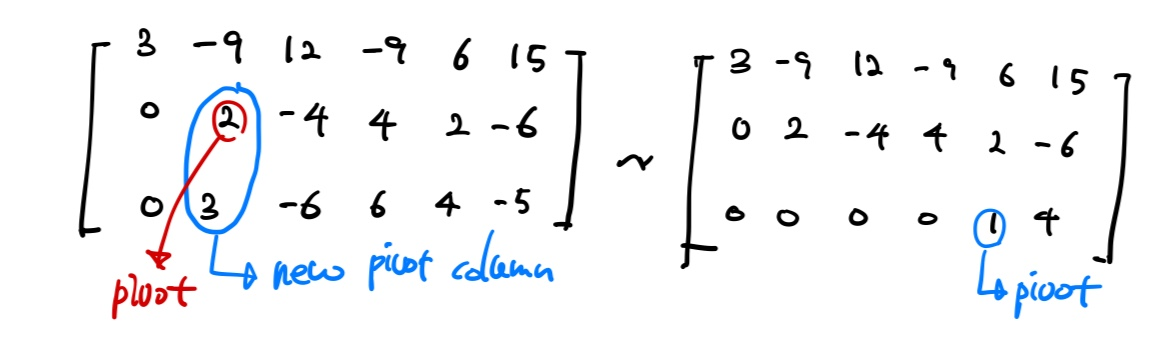 3 -9 12 -9 6 15
0 2 -4 4 2 -6
0 3 -6 6 4 -5
pivot
new pivot column
~
3 -9 12 -9 6 15
0 2 -4 4 2 -6
0 0 0 0 1 4
pivot